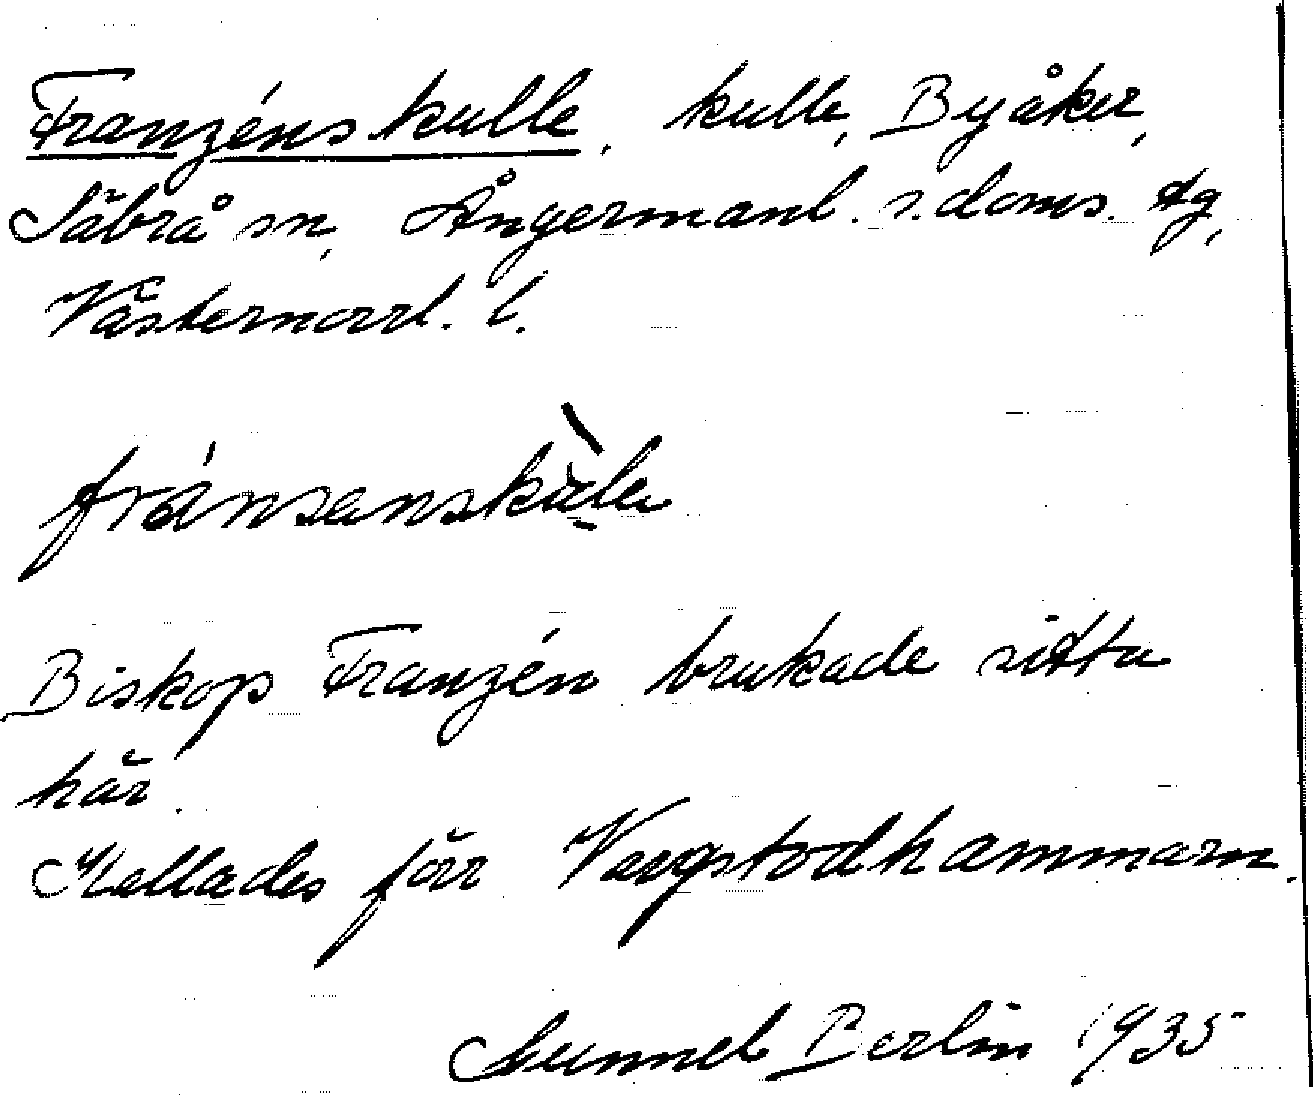 Franzéns kulle, kulle, Byåker,
Säbrå sn, Ångermanl. s. doms. tg,
Västernorrl. l.
Biskop Franzén brukade sitta
här.
Kallades förr Vargstodhammarn.
Gunnel Berlin 1935